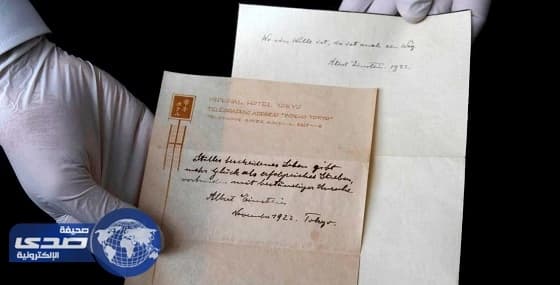 Wo ein Wille ist, da ist auch ein Weg.
Albert Einstein. 1922.
IMPERIAL HOTEL TOKYO
TELEGRAPHIC ADDRESS "IMPHO TOKYO"
Stilles bescheidenes Leben gibt
mehr Glück als erfolgreiches Streben,
verbunden mit beständiger Unruhe.
Albert Einstein
November 1922. Tokyo.
صحيفة
صدى
الإلكترونية